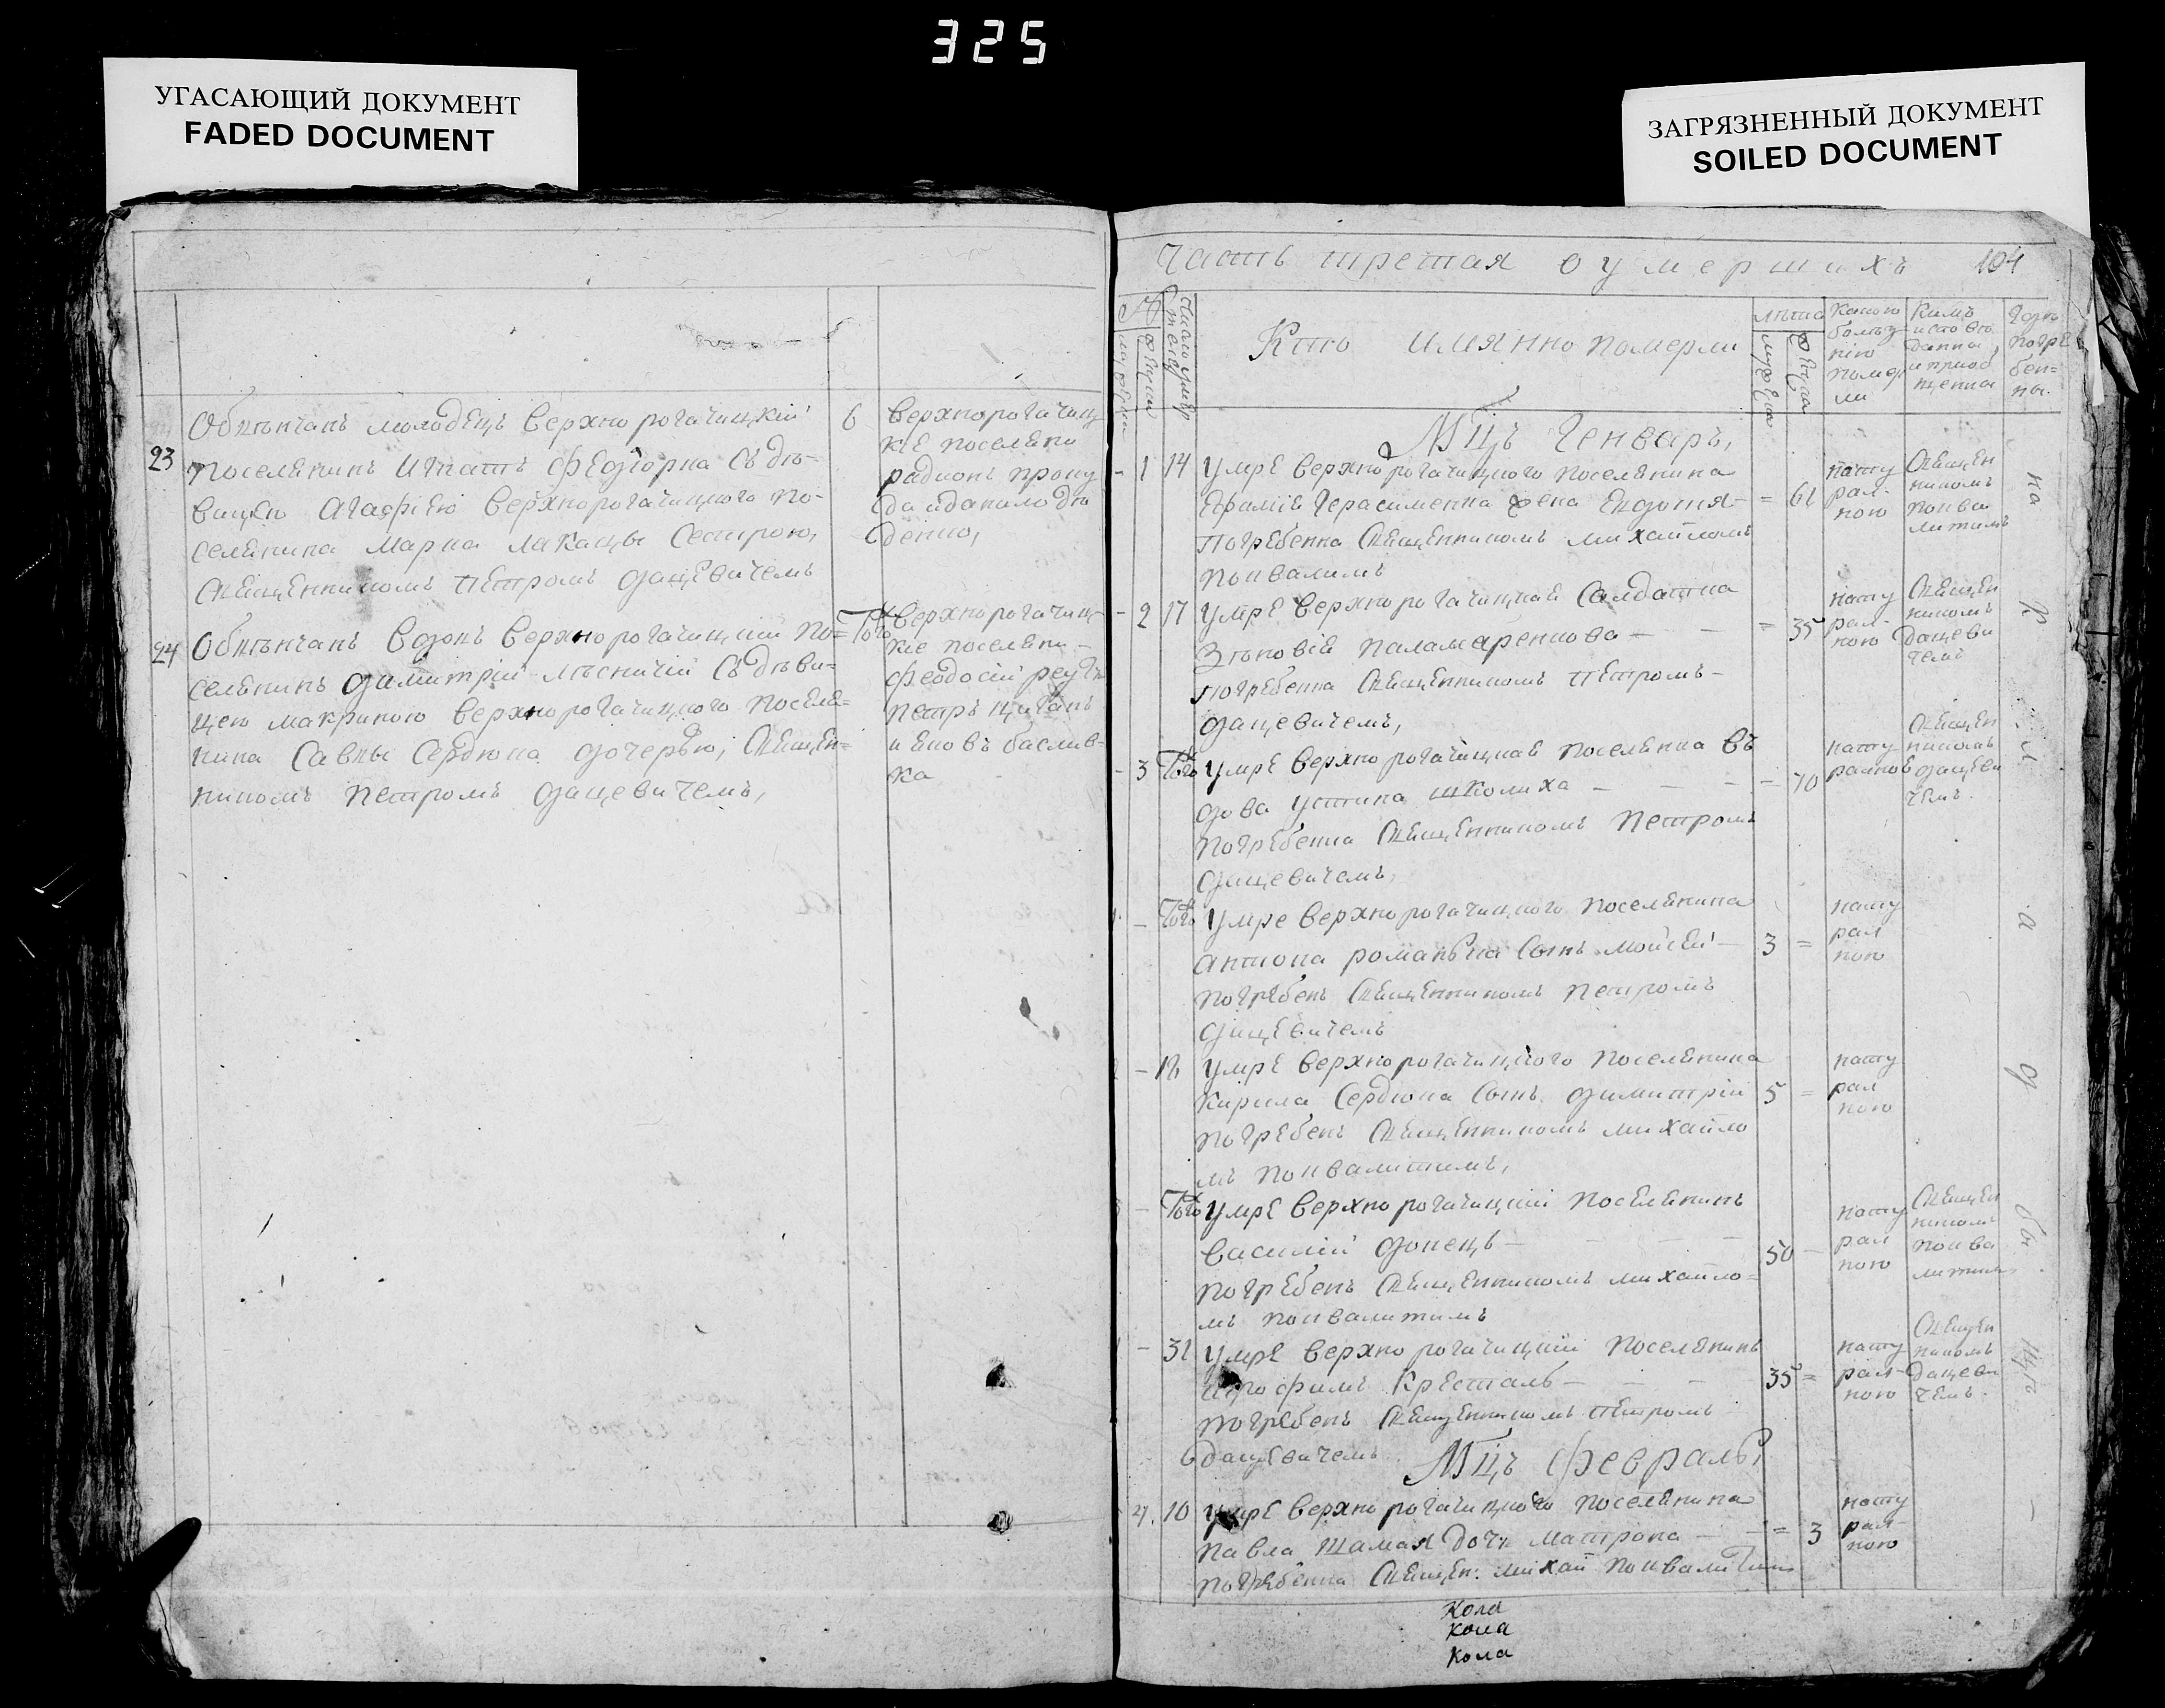 325
УГАСАЮЩИЙ ДОКУМЕНТ
FADED DOCUMENT
ЗАГРЯЗНЕННЫЙ ДОКУМЕНТ
SOILED DOCUMENT
Обвѣнчанъ молодецъ верхнорогачицкій 6
23 поселянинъ Игнатъ съ дѣ-
вицею Агафіею верхнорогачицкого по-
селянина Марка сестрою,
священникомъ Петромъ Дацевичемъ
верхнорогачиц
кіе поселяни
радионъ
24 Обвѣнчанъ вдовъ верхнорогачицкій по= Того
селянинъ Димитрій лѣсничій съ дѣви=
цею макриною верхнорогачицкого поселя=
нина Савы Сердюка дочерью, священ=
никомъ Петромъ Дацевичемъ,
верхнорогачиц-
кіе поселяни-
Феодосій
Петръ циганъ
и
ка
Часть третая о умершихъ 104
№
мужеска
женска
число умер
Кто имянно померли
лѣта
мужеска
женска
какою
болѣз
нію
померли
кимъ
исповѣ
данна
и приоб
щенна
гдѣ
погре
бен=
ны.
Мцъ Генварь,
- 1 14 умре верхнорогачицкого поселянина
Герасименка жена Евдотія = 61
погребенна священникомъ михайломъ
нату
рал-
ною
Священ
никомъ
на
2 17 умре верхнорогачицкая салдатка
Зѣновія Паламаренкова = 35
погребенна священникомъ Петромъ-
Дацевичемъ,
нату
рал-
ною
Священ
никомъ
дацеви
чемъ
- 3 Того умре верхнорогачицкая поселянка в
дова Устина Школиха - - - = 70
погребенна священникомъ Петромъ
Дацевичемъ,
нату
ралною
Священ
никомъ
дацеви
чемъ.
- Того умре верхнорогачицкого поселянина
Антона сынъ мойсей - 3 =
погребенъ священникомъ Петромъ
Дацевичемъ
нату
рал
ною
- 18 умре верхнорогачицкого поселянина
Кирила Сердюка сынъ Димитрій 5 =
погребенъ священникомъ михайло
мъ
нату
рал
ною
- Того умре верхнорогачицкій поселянинъ
василій донецъ - 50 -
погребенъ священникомъ михайло=
мъ
нату
рал
ною
Священ
никомъ
- 31 умре верхнорогачицкій поселянинъ
35 =
погребенъ священникомъ Петромъ
дацевичемъ
нату
рал-
ною
Священ
никомъ
дацеви
чемъ.
Мцъ Февраль,
4. 10 умре верхнорогачицкого поселянина
Павла Шамая дочь Матрона - = 3
погребенна священ: михай
нату
рал-
ною
кола
кола
кола